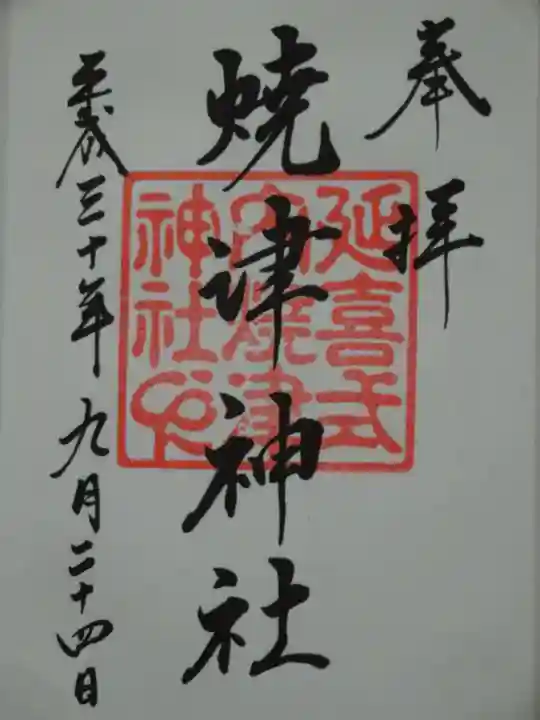 奉拝
延喜式
内焼津
神社印
焼津神社
平成三十年九月二十四日